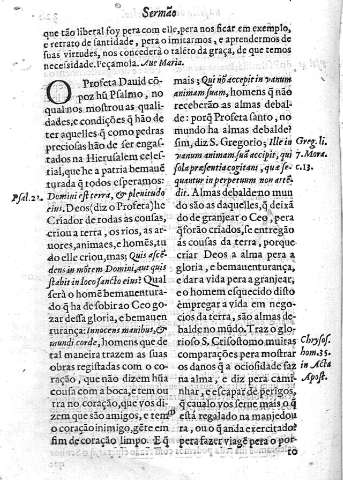 Sermão
que tão liberal foy pera com elle, pera nos ficar em exemplo,
e retrato de santidade, pera o imitarmos, e aprendermos de
suas virtudes, nos concederà o taléto da graça, de que temos
necessidade. Peçamola. Aue Maria.
O Profeta Dauid cõ-
poz hũ Psalmo, no
qual nos mostrou as quali-
dades, e condições q̃ hão de
ter aquelles q̃ como pedras
preciosas hão de ser engas-
tados na Hierusalem celes-
tial, que he a patria bemauē
turada q̃ todos esperamos:
Psal. 23. Domini est terra, & plenitudo
eius. Deos (diz o Profeta) he
Criador de rodas as cousas,
criou a terra, os rios, as ar-
uores, animaes, e homẽs, tu
do elle criou, mas; Quis ascē
dens in mõtem Domini, aut quis
stabit in loco sancto eius? Qual
serà o homẽ bemauentura-
do q̃ ha de sobir ao Ceo go-
zar dessa gloria, e bemauen
turança: Innocens manibus, &
mundi corde, homens que de
tal maneira trazem as suas
obras registadas com o co-
ração, que não dizem hũa
cousa com a boca, e tem ou
tra no coração, que vos di-
zem que são amigos, e tem
o coração inimigo, gẽte em
fim de coração limpo. E q̃
mais; Qui nõ accepit in vanum
animam suam, homens q̃ não
receberão as almas debal-
de: porq̃ Profeta santo, no
mundo ha almas debalde?
sim, diz S. Gregorio; Ille in
vanum animam suã accipit, qui
sola præsentia cogitans, quæ se-
quantur in perpetuum non attē-
dit. Almas debalde no mun
do são as daquelles, q̃ deixã
do de granjear o Ceo, pera
q̃ forão criados, se entregão
ás cousas da terra, porque
criar Deos a alma pera a
gloria, e bemauenturança,
e dar a vida pera a granjear,
e o homem esquecido disto
empregar a vida em nego-
cios da terra, são almas de-
balde no mũdo. Traz o glo-
rioso S. Crisostomo muitas
comparações pera mostrar
os danos q̃ a ociosidade faz
na alma, e diz pera cami-
nhar, e escapar de perigos,
q̃ caualo vos serue mais o q̃
está regalado na manjedou
ra, ou o q̃ anda e exercitado
pera fazer viagẽ pera o por-
to
Greg. li.
7. Mora.
c. 13.
Chrysos.
hom. 35.
in Acta
Apost.